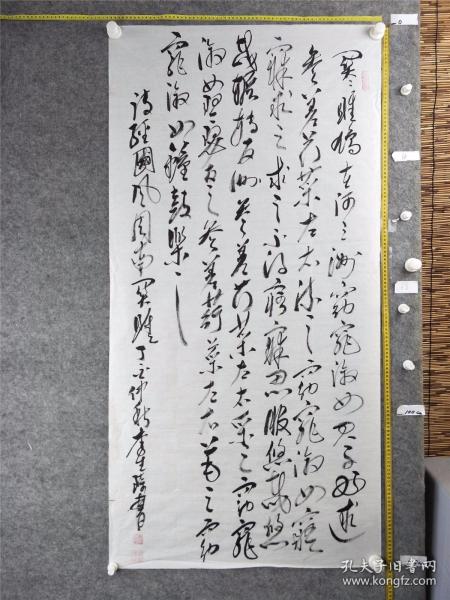 关雎鸠在河之洲窈窕淑女君子好逑
参差荇菜左右流之窈窕淑女寤
寐求之求之不得寤寐思服悠哉悠
哉辗转反侧参差荇菜左右采之窈窕
淑女琴瑟友之参差荇菜左右芼之窈
窕淑女鐘鼓樂之
詩經國風周南关雎丁亥仲秋李生
孔夫子旧书网
www.kongfz.com